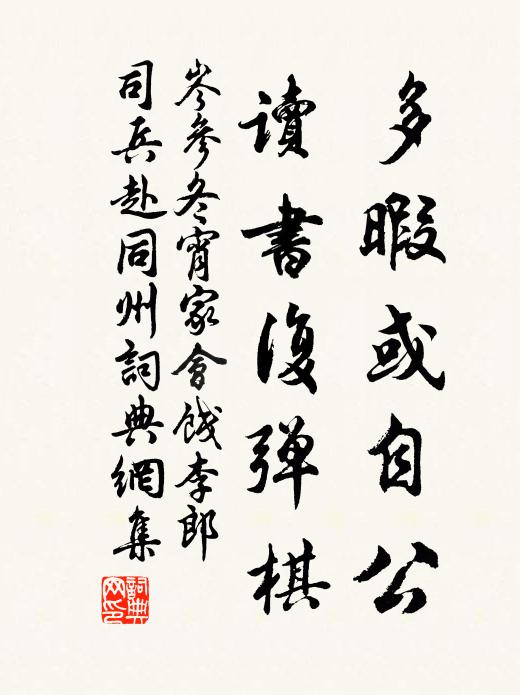 多暇或自公
讀書復弾棋
岑參冬宵家會餞李郎
司兵赴同州詞典網集
詞典
网印